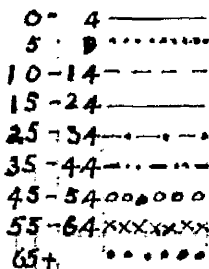 0- 4
5- 9
10-14
15-24
25-34
35-44
45-54
55-64
65+